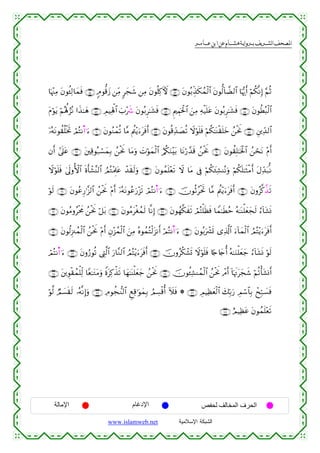 المصحف الشريف برواية هشام عن ابن عامر
ثُمَّ إِنَّكُمْ أَيُّهَا ٱلضَّآلُّونَ ٱلْمُكَذِّبُونَ ۝ لَأٓكِلُونَ مِن شَجَرٍ مِّن زَقُّومٍ ۝ فَمَالِـُٔونَ مِنْهَا
ٱلْبُطُونَ ۝ فَشَٰرِبُونَ عَلَيْهِ مِنَ ٱلْحَمِيمِ ۝ فَشَٰرِبُونَ شَرْبَ ٱلْهِيمِ ۝ هَٰذَا نُزُلُهُمْ يَوْمَ
ٱلدِّينِ ۝ نَحْنُ خَلَقْنَٰكُمْ فَلَوْلَا تُصَدِّقُونَ ۝ أَفَرَءَيْتُم مَّا تُمْنُونَ ۝ ءَأَنتُمْ تَخْلُقُونَهُۥٓ
أَمْ نَحْنُ ٱلْخَٰلِقُونَ ۝ نَحْنُ قَدَّرْنَا بَيْنَكُمُ ٱلْمَوْتَ وَمَا نَحْنُ بِمَسْبُوقِينَ ۝ عَلَىٰٓ أَن
نُّبَدِّلَ أَمْثَٰلَكُمْ وَنُنشِئَكُمْ فِى مَا لَا تَعْلَمُونَ ۝ وَلَقَدْ عَلِمْتُمُ ٱلنَّشْأَةَ ٱلْأُولَىٰ فَلَوْلَا
تَذَّكَّرُونَ ۝ أَفَرَءَيْتُم مَّا تَحْرُثُونَ ۝ ءَأَنتُمْ تَزْرَعُونَهُۥٓ أَمْ نَحْنُ ٱلزَّٰرِعُونَ ۝ لَوْ
نَشَآءُ لَجَعَلْنَٰهُ حُطَٰمًا فَظَلْتُمْ تَفَكَّهُونَ ۝ إِنَّا لَمُغْرَمُونَ ۝ بَلْ نَحْنُ مَحْرُومُونَ ۝
أَفَرَءَيْتُمُ ٱلْمَآءَ ٱلَّذِى تَشْرَبُونَ ۝ ءَأَنتُمْ أَنزَلْتُمُوهُ مِنَ ٱلْمُزْنِ أَمْ نَحْنُ ٱلْمُنزِلُونَ ۝
لَوْ نَشَآءُ جَعَلْنَٰهُ أُجَاجًا فَلَوْلَا تَشْكُرُونَ ۝ أَفَرَءَيْتُمُ ٱلنَّارَ ٱلَّتِى تُورُونَ ۝ ءَأَنتُمْ
أَنشَأْتُمْ شَجَرَتَهَآ أَمْ نَحْنُ ٱلْمُنشِـُٔونَ ۝ نَحْنُ جَعَلْنَٰهَا تَذْكِرَةً وَمَتَٰعًا لِّلْمُقْوِينَ ۝
فَسَبِّحْ بِٱسْمِ رَبِّكَ ٱلْعَظِيمِ ۝ ۞ فَلَآ أُقْسِمُ بِمَوَٰقِعِ ٱلنُّجُومِ ۝ وَإِنَّهُۥ لَقَسَمٌ لَّوْ
تَعْلَمُونَ عَظِيمٌ ۝
الحرف المخالف لحفص الإدغام الإمالة
الشبكة الإسلامية www.islamweb.net